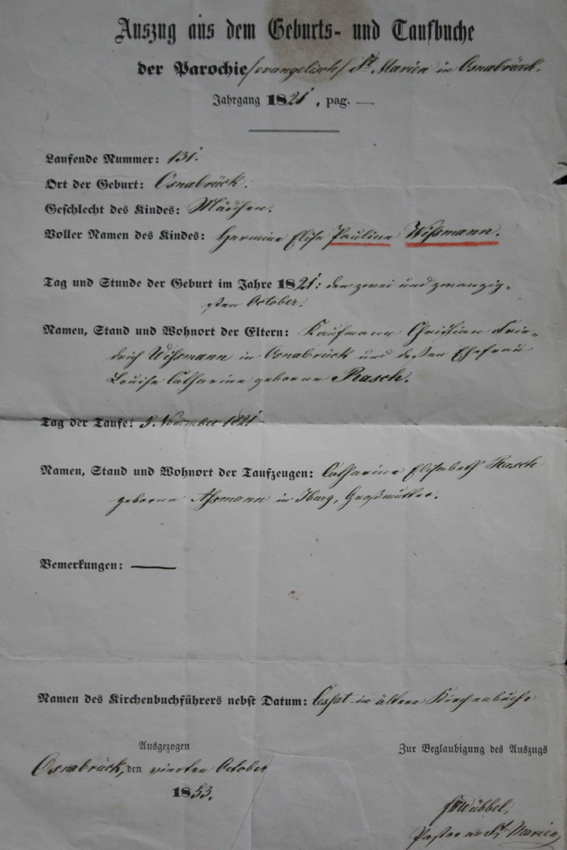 Auszug aus dem Geburts- und Taufbuche
der Parochie /evangelisch/ St Marien in Osnabrück.
Jahrgang 1821, pag. —
Laufende Nummer: 131.
Ort der Geburt: Osnabrück.
Geschlecht des Kindes: Mädchen.
Voller Namen des Kindes: Hermine Elise Pauline Wißmann.
Tag und Stunde der Geburt im Jahre 1821: den zwei und zwanzig-
sten October.
Namen, Stand und Wohnort der Eltern: Kaufmann Christian Frie-
drich Wißmann in Osnabrück und dessen Ehefrau
Louise Catharine geborne Rasch.
Tag der Taufe: 5 November 1821
Namen, Stand und Wohnort der Taufzeugen: Catharine Elisabeth Rasch
geborne Aßmann in Iburg, Großmutter.
Bemerkungen: —
Namen des Kirchenbuchführers nebst Datum: in ältere Kirchenbüche
Ausgezogen
Zur Beglaubigung des Auszugs
Osnabrück, den vierten October
1853.
Pastor an St Marien